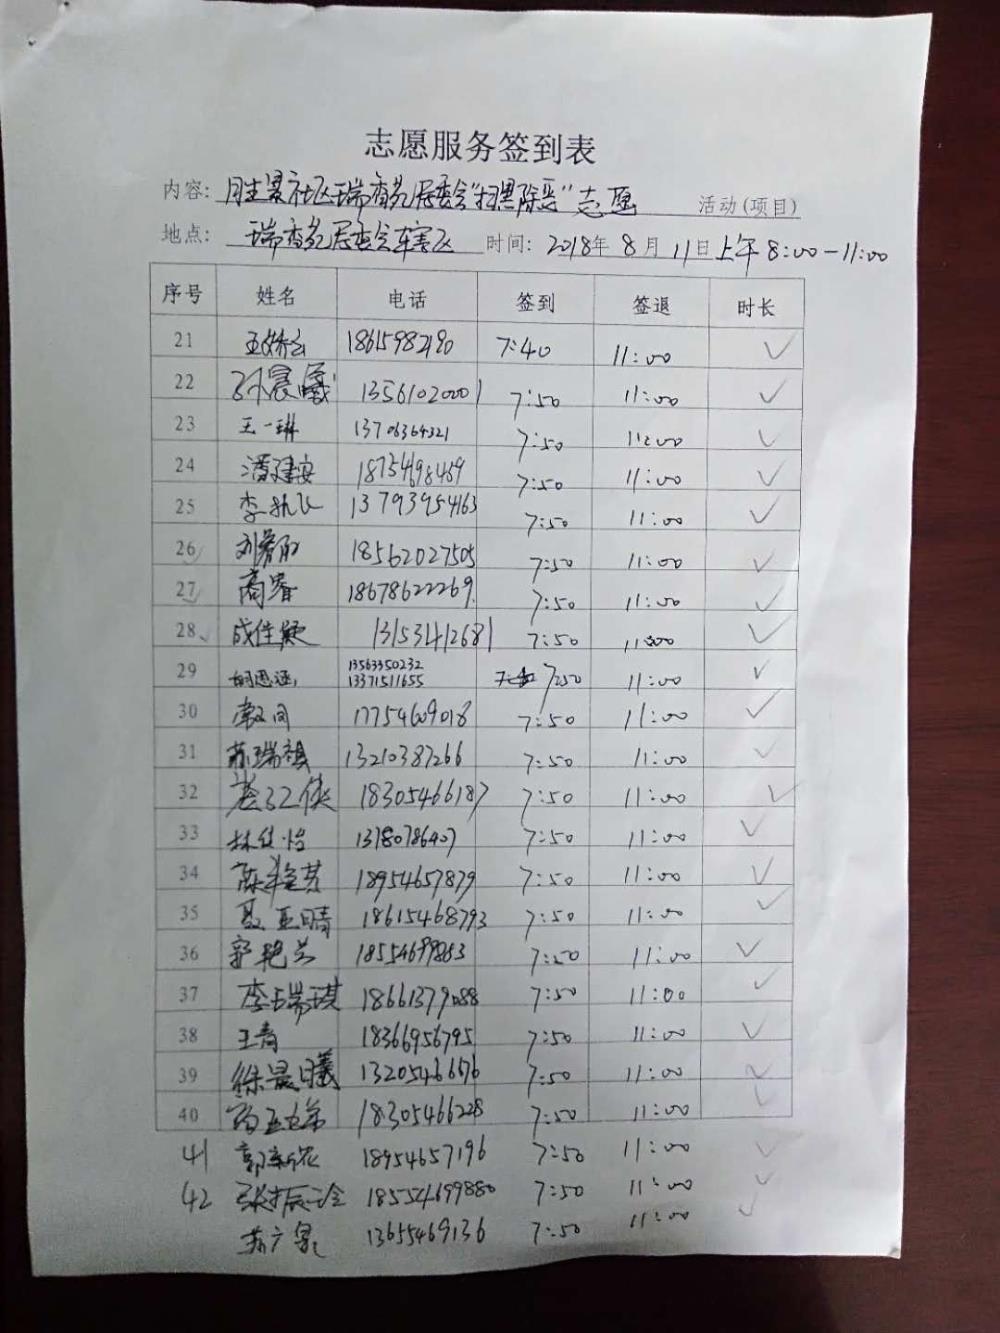 志愿服务签到表
内容: 社区瑞香苑居委会"扫黑除恶"志愿 活动(项目)
地点: 瑞香苑居委会辖区 时间: 2018年 8月 11日上午8:00-11:00
序号 姓名 电话 签到 签退 时长
21 18615982190 7:40 11:00 ✓
22 孙晨曦 13561020001 7:50 11:00 ✓
23 王一琳 13706364321 7:50 11:00 ✓
24 潘建安 18754698489 7:50 11:00 ✓
25 李凯飞 13793954163 7:50 11:00 ✓
26 18562027505 7:50 11:00 ✓
27 高睿 18678622269 7:50 11:00 ✓
28 成佳 13153412681 7:50 11:00 ✓
29 胡恩涵 13563350232 7:50 11:00 ✓
13371511655
30 17754609018 7:50 11:00 ✓
31 苏瑞祺 13210387266 7:50 11:00 ✓
32 18305466187 7:50 11:00 ✓
33 林佳怡 13780786407 7:50 11:00 ✓
34 陈 18954657879 7:50 11:00 ✓
35 聂亚晴 18615468793 7:50 11:00 ✓
36 郭艳兰 18554699883 7:50 11:00 ✓
37 李瑞琪 18661379088 7:50 11:00 ✓
38 王青 18366956795 7:50 11:00 ✓
39 徐晨曦 13205466676 7:50 11:00 ✓
40 18305466228 7:50 11:00 ✓
41 郭 18954657196 7:50 11:00 ✓
42 张振 18554699880 7:50 11:00 ✓
苏广 13655469136 7:50 11:00 ✓